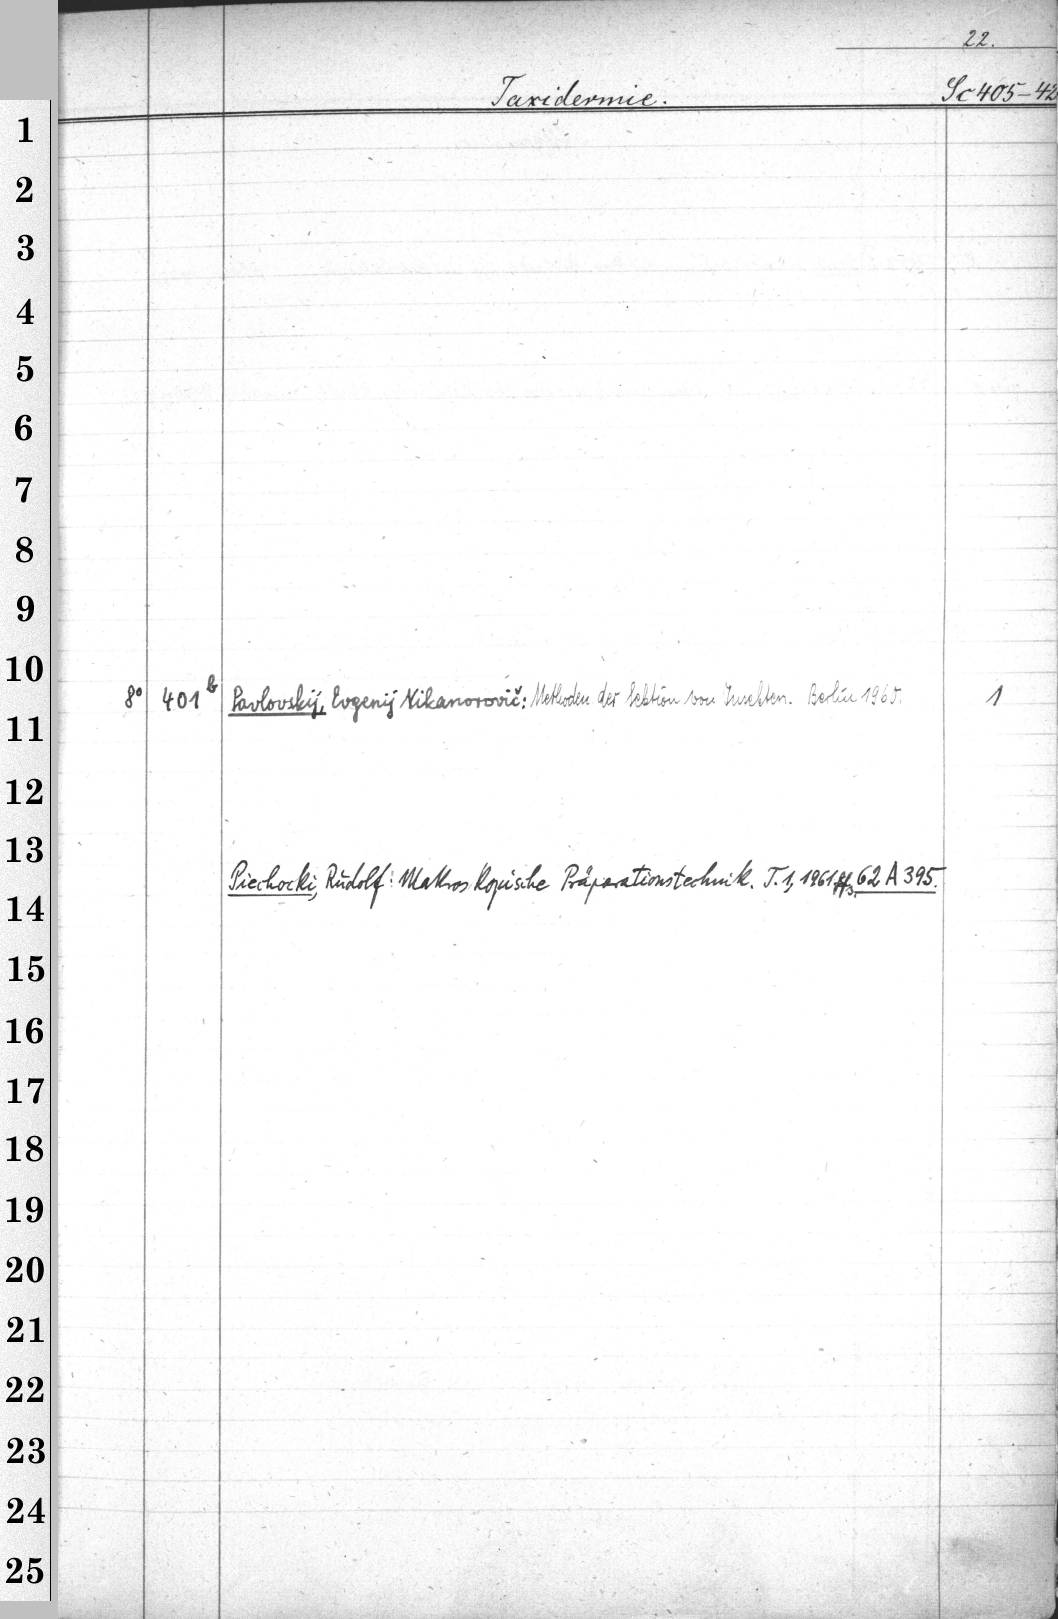 22.
Taxidermie. Sc 405-42
1
2
3
4
5
6
7
8
9
10
8° 401 b Pavlovskij, Evgenij Nikanorovič: Methoden der Sektion von Insekten. Berlin 1960. 1
11
12
13
Piechocki, Rudolf: Makroskopische Präparationstechnik. T. 1, 1961 ff. 62 A 395.
14
15
16
17
18
19
20
21
22
23
24
25